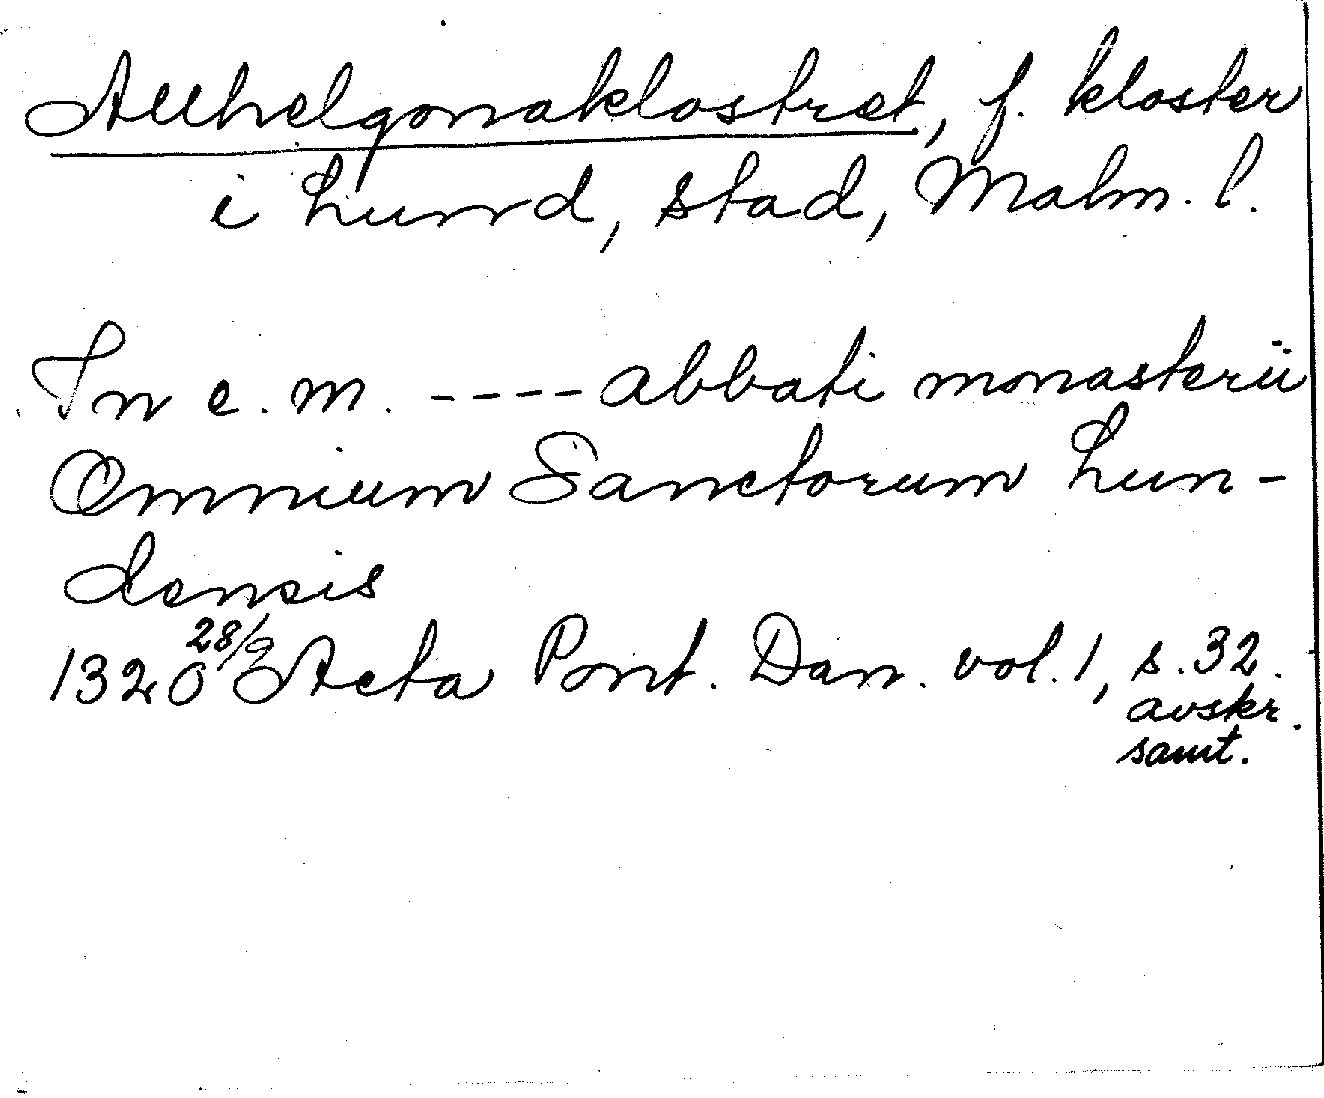 Allhelgonaklostret, f. kloster
i Lund, stad, Malm. l.
In e. m. ---- abbati monasterii
Omnium Sanctorum Lun-
densis
1320 28/9 Acta Pont. Dan. vol. 1, s. 32.
avskr.
samt.